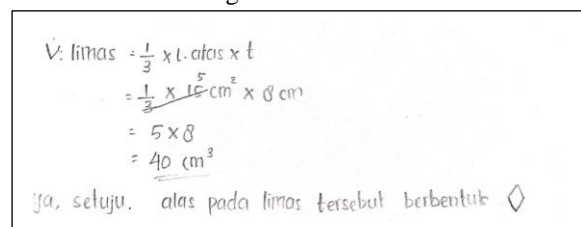 V: limas = 1/3 x l. alas x t
= 1/3 x 15 5 cm² x 8 cm
= 5 x 8
= 40 cm³
ya, setuju. alas pada limas tersebut berbentuk ◇